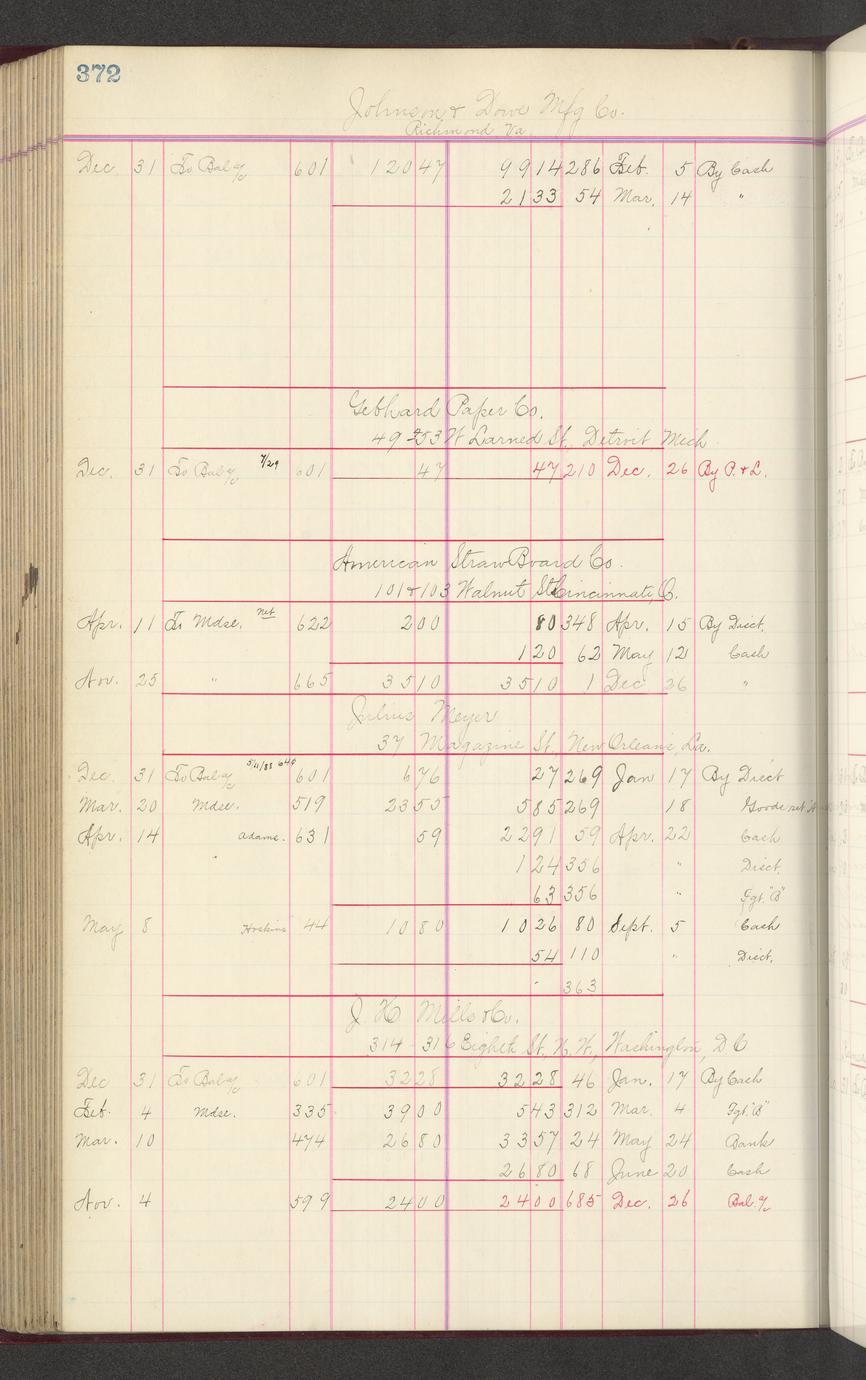 372
Johnson & Dowe Mfg Co.
Richmond Va.
Dec. 31 To Bal a/c 601 120 47 99 14 286 Feb. 5 By Cash
21 33 54 Mar. 14 "
Gebhard Paper Co.
49 253 W Larned St, Detroit Mich.
Dec. 31 To Bal a/c 7/29 601 47 47 210 Dec. 26 By P. & L.
American StrawBoard Co.
101 & 103 Walnut St. Cincinnati, O.
Apr. 11 To Mdse. net 622 2 00 80 348 Apr. 15 By Disct.
1 20 62 May 12 Cash
Nov. 25 " 665 35 10 35 10 1 Dec 26 "
Julius Meyer
37 Magazine St, New Orleans, La.
Dec. 31 To Bal a/c 601 6 76 27 269 Jan 17 By Disct
Mar. 20 Mdse. 519 23 55 5 85 269 18 Goods ret.
Apr. 14 Adams. 631 59 22 91 59 Apr. 22 Cash
1 24 356 " Disct.
63 356 " Fgt. "B"
May 8 Hoskins 44 10 80 10 26 80 Sept. 5 Cash
54 110 " Disct.
363
J. H. Mills & Co.
314-316 Eighth St, N. W., Washington, D C
Dec 31 To Bal a/c 601 32 28 32 28 46 Jan. 17 By Cash
Feb. 4 Mdse. 335 39 00 5 43 312 Mar. 4 Fgt. "B"
Mar. 10 474 26 80 33 57 24 May 24 Bank
26 80 68 June 20 Cash
Nov. 4 599 24 00 24 00 685 Dec. 26 Bal. a/c